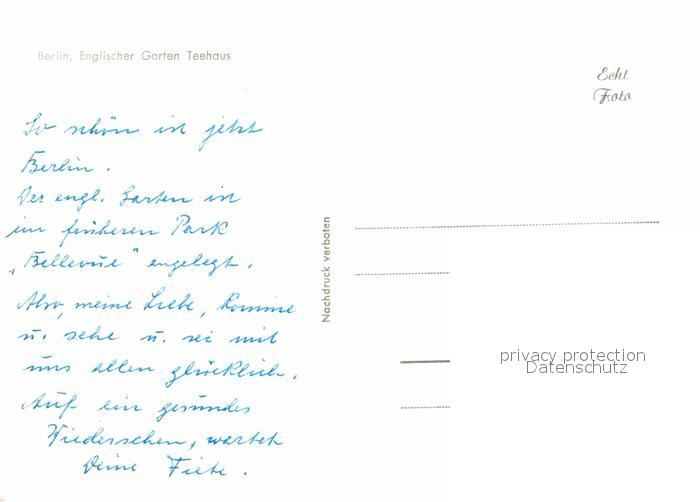 Berlin, Englischer Garten Teehaus
Echt
Foto
So schön ist jetzt
Berlin.
Der engl. Garten ist
im früheren Park
„Bellevue" angelegt.
Also, meine Liebe, komme
u. sehe u. sei mit
uns allen glücklich.
Auf ein gesundes
Wiedersehen, wartet
Deine
Nachdruck verboten
privacy protection
Datenschutz